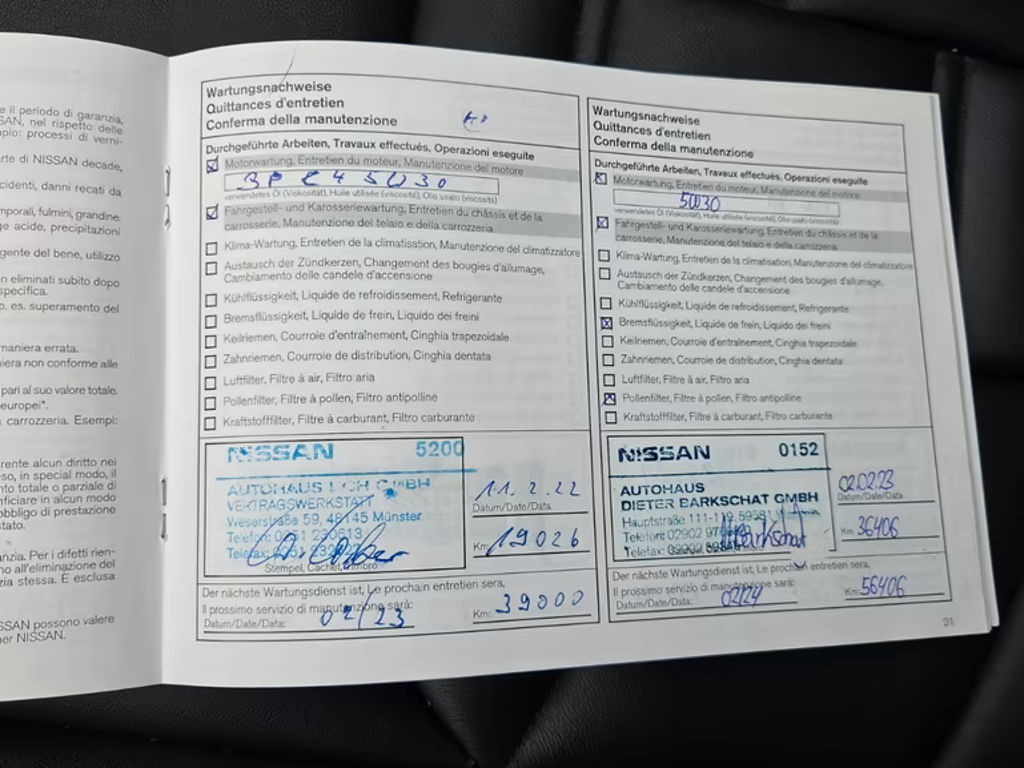 e il periodo di garanzia,
SAN, nel rispetto delle
mpio: processi di verni-
rte di NISSAN decade,
cidenti, danni recati da
mporali, fulmini, grandine.
ge acide, precipitazioni
gente del bene, utilizzo
n eliminati subito dopo
specifica.
o. es. superamento del
maniera errata.
niera non conforme alle
pari al suo valore totale.
europei".
carrozzeria. Esempi:
rente alcun diritto nei
eso, in special modo, il
nto totale o parziale di
nficiare in alcun modo
obbligo di prestazione
stato.
nzia. Per i difetti rien-
no all'eliminazione del
ia stessa. È esclusa
SSAN possono valere
ner NISSAN.
Wartungsnachweise
Quittances d'entretien
Conferma della manutenzione
Durchgeführte Arbeiten, Travaux effectués, Operazioni eseguite
Motorwartung, Entretien du moteur, Manutenzione del motore
5W30
verwendetes Öl (Viskosität), Huile utilisée (viscosité), Olio usato (viscosità)
Fahrgestell- und Karosseriewartung, Entretien du châssis et de la
carrosserie, Manutenzione del telaio e della carrozzeria
Klima-Wartung, Entretien de la climatisation, Manutenzione del climatizzatore
Austausch der Zündkerzen, Changement des bougies d'allumage,
Cambiamento delle candele d'accensione
Kühlflüssigkeit, Liquide de refroidissement, Refrigerante
Bremsflüssigkeit, Liquide de frein, Liquido dei freini
Keilriemen, Courroie d'entraînement, Cinghia trapezoidale
Zahnriemen, Courroie de distribution, Cinghia dentata
Luftfilter, Filtre à air, Filtro aria
Pollenfilter, Filtre à pollen, Filtro antipolline
Kraftstofffilter, Filtre à carburant, Filtro carburante
NISSAN 5200
AUTOHAUS GMBH
VERTRAGSWERKSTATT
Weserstraße 59, 48145 Münster
Telefon: 0251 230613
Telefax: 0251
Stempel, Cachet, Timbro
11.2.22
Datum/Date/Data
Km: 19026
Der nächste Wartungsdienst ist, Le prochain entretien sera,
Il prossimo servizio di manutenzione sarà:
Datum/Date/Data: 02/23
Km: 39000
Wartungsnachweise
Quittances d'entretien
Conferma della manutenzione
Durchgeführte Arbeiten, Travaux effectués, Operazioni eseguite
Motorwartung, Entretien du moteur, Manutenzione del motore
5W30
verwendetes Öl (Viskosität), Huile utilisée (viscosité), Olio usato (viscosità)
Fahrgestell- und Karosseriewartung, Entretien du châssis et de la
carrosserie, Manutenzione del telaio e della carrozzeria
Klima-Wartung, Entretien de la climatisation, Manutenzione del climatizzatore
Austausch der Zündkerzen, Changement des bougies d'allumage,
Cambiamento delle candele d'accensione
Kühlflüssigkeit, Liquide de refroidissement, Refrigerante
Bremsflüssigkeit, Liquide de frein, Liquido dei freini
Keilriemen, Courroie d'entraînement, Cinghia trapezoidale
Zahnriemen, Courroie de distribution, Cinghia dentata
Luftfilter, Filtre à air, Filtro aria
Pollenfilter, Filtre à pollen, Filtro antipolline
Kraftstofffilter, Filtre à carburant, Filtro carburante
NISSAN 0152
AUTOHAUS
DIETER BARKSCHAT GMBH
Hauptstraße
Telefon: 02902
Telefax: 02902
Barkschat
02.02.23
Datum/Date/Data
Km: 36406
Der nächste Wartungsdienst ist, Le prochain entretien sera,
Il prossimo servizio di manutenzione sarà:
Datum/Date/Data: 02/24
Km: 56406
21